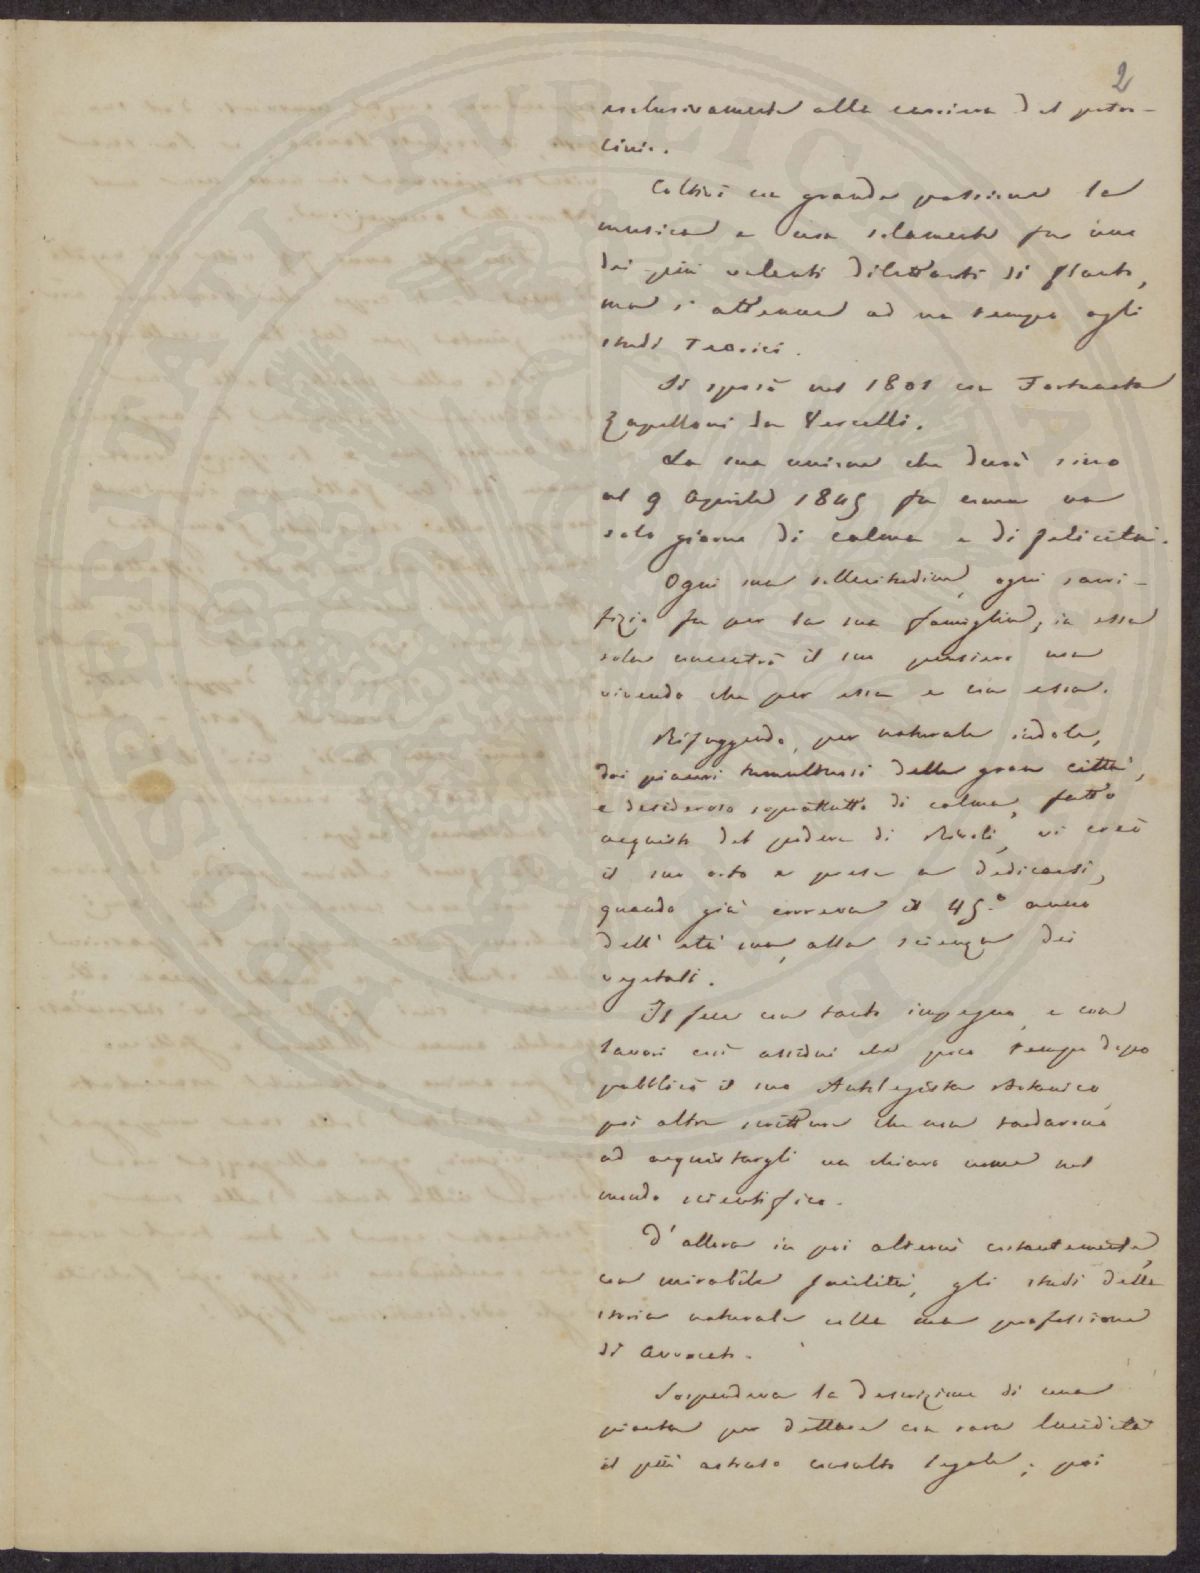 2
esclusivamente alla carriera del patro-
cinio.
Coltivò con grande passione la
musica e non solamente fu uno
dei più valenti dilettanti di flauto,
ma s'attenne ad un tempo agli
studi teorici.
Si sposò nel 1801 con Fortunata
Zapelloni da Vercelli.
La sua unione che durò sino
al 9 Aprile 1845 fu come un
solo giorno di calma e di felicità.
Ogni sua sollecitudine, ogni sacri-
fizio fu per la sua famiglia; in essa
sola concentrò il suo pensiero non
vivendo che per essa e con essa.
Rifuggendo, per naturale indole,
dai piaceri tumultuosi della gran città,
e desideroso soprattutto di calma, fatto
acquisto del podere di Rivoli, vi creò
il suo orto e prese a dedicarsi,
quando già correva il 45.º anno
dell'età sua, alla scienza dei
vegetali.
Il fece con tanto impegno e con
lavori così assidui che poco tempo dopo
pubblicò il suo Autologista Botanico,
poi altre scritture che non tardarono
ad acquistargli un chiaro nome nel
mondo scientifico.
D'allora in poi alternò costantemente,
con mirabile facilità, gli studi della
storia naturale colla sua professione
di Avvocato.
Sospendeva la descrizione di una
pianta per dettare con rara lucidità
il più astruso consulto legale; poi